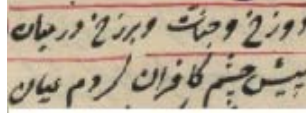 دوزخ و جنات و برزخ در میان
پیش چشم کافران آردم عیان